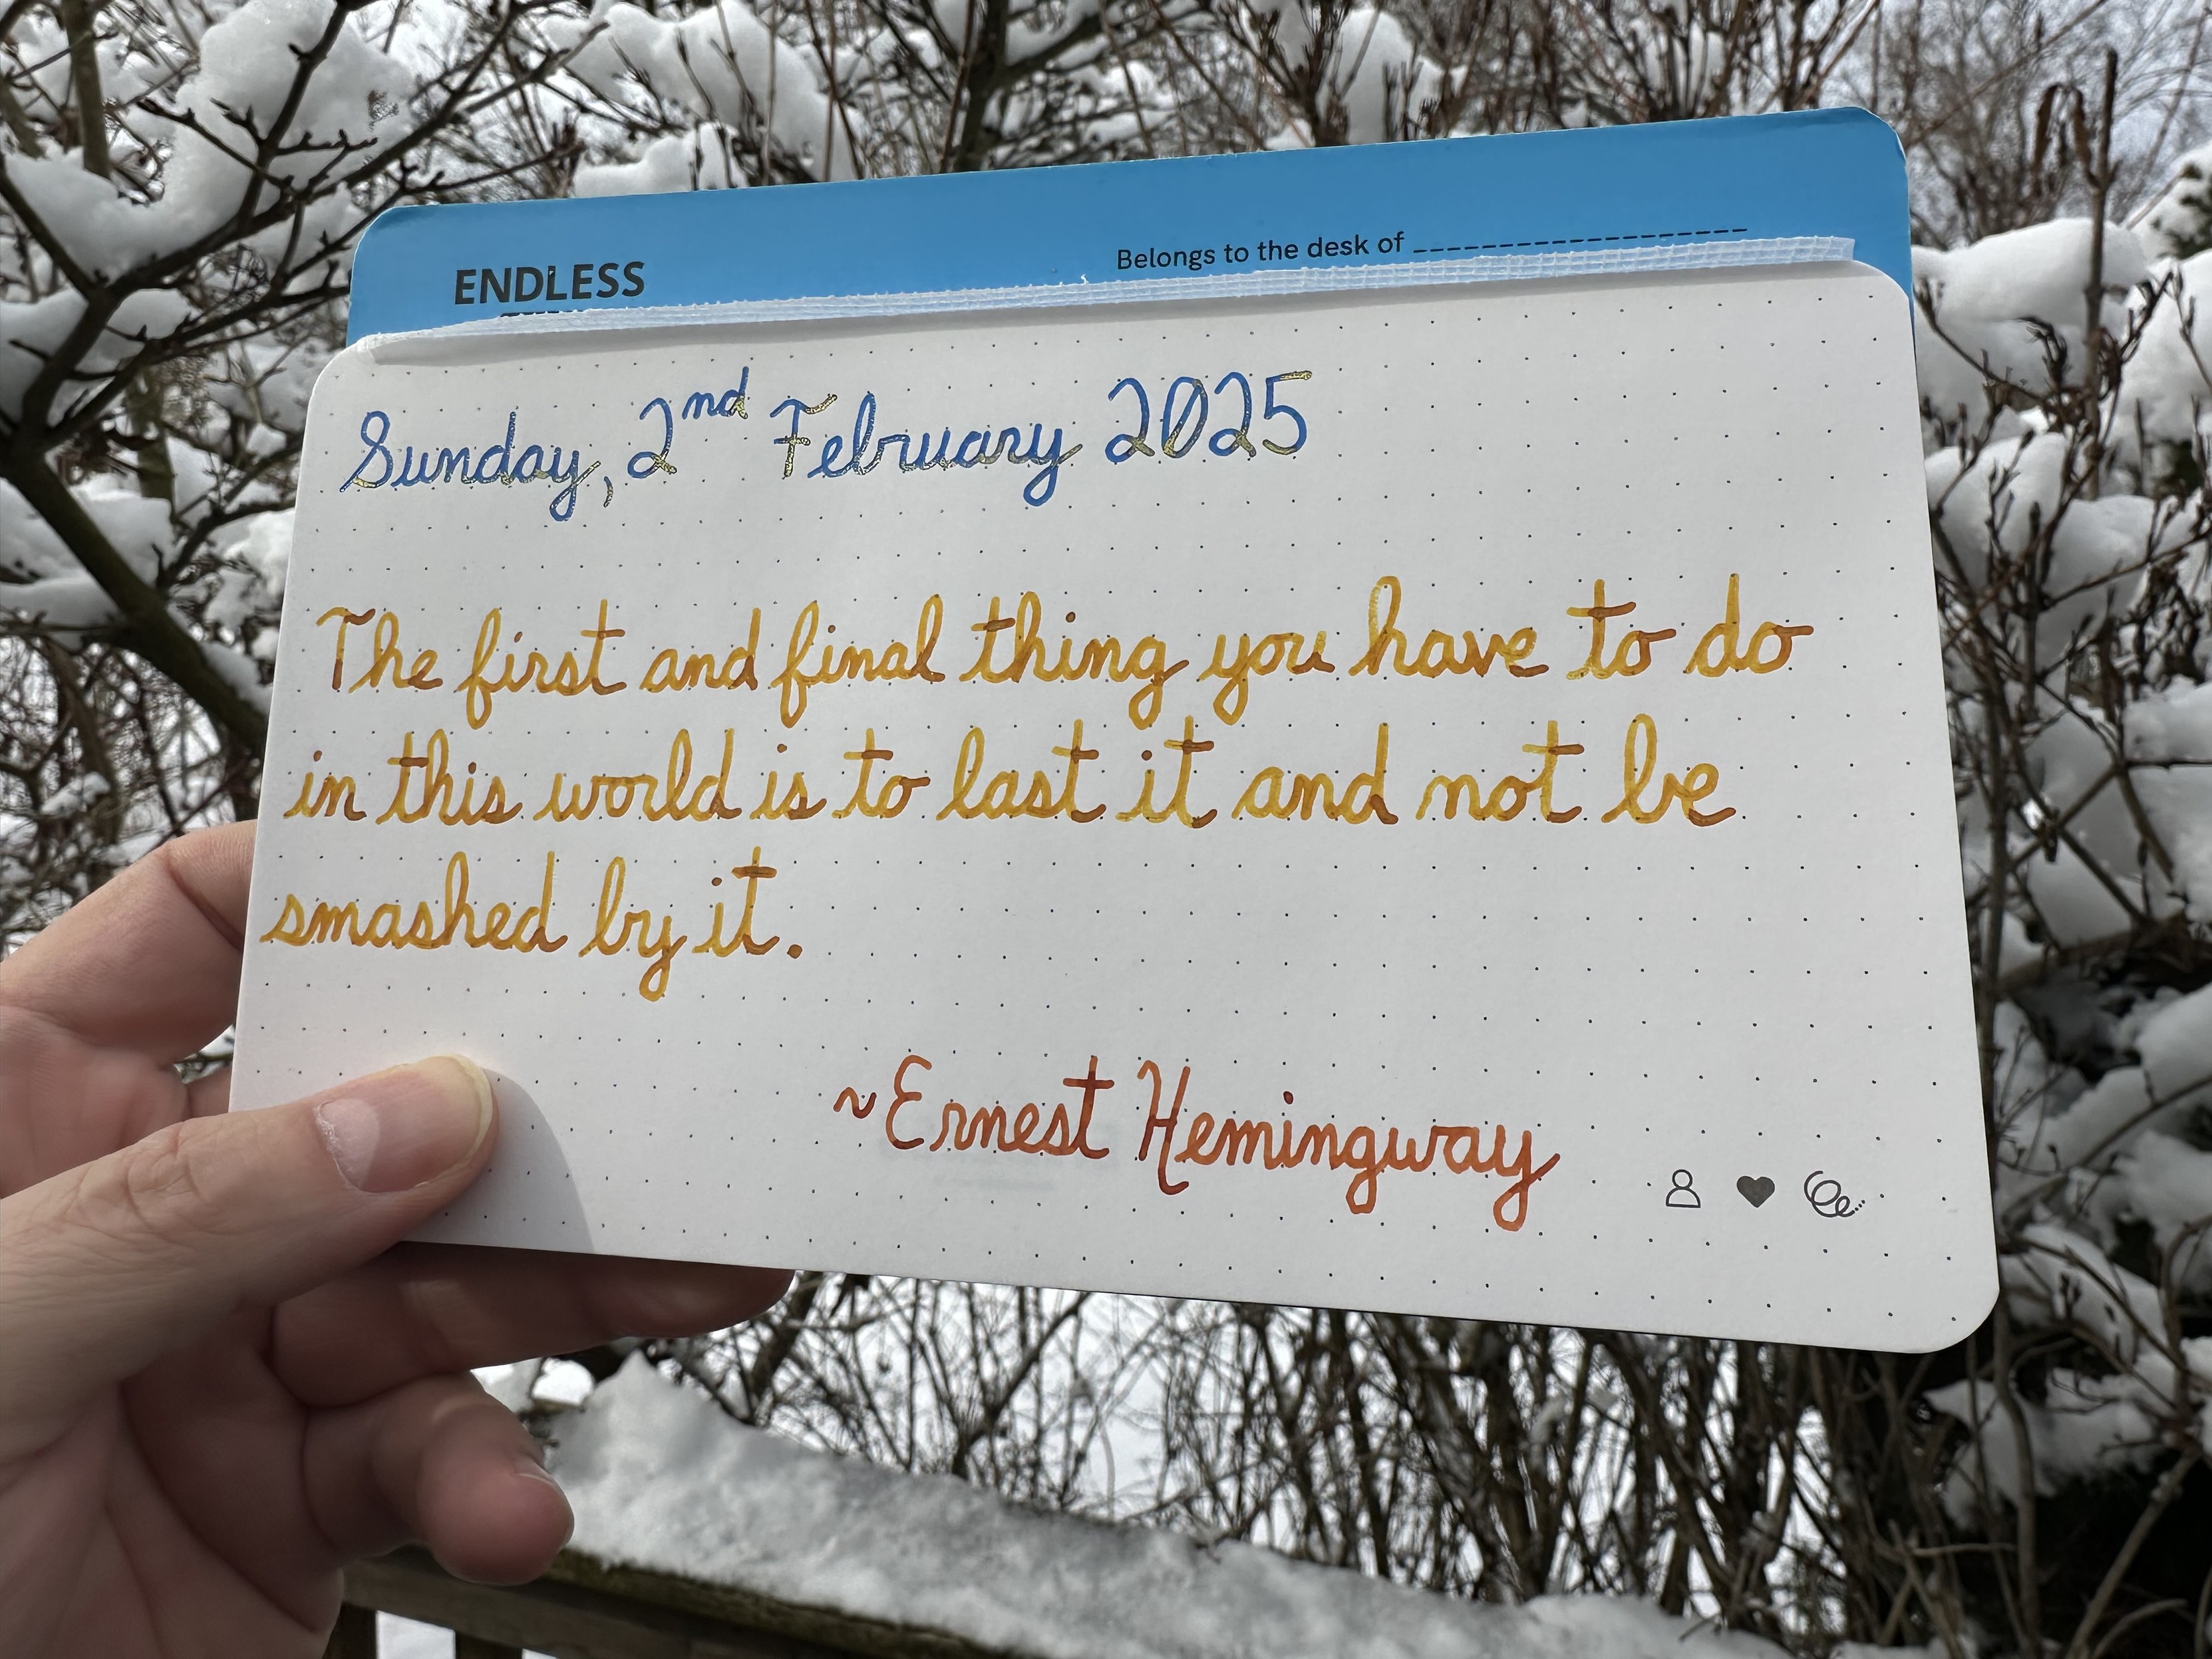 ENDLESS
Belongs to the desk of
Sunday, 2nd February 2025
The first and final thing you have to do
in this world is to last it and not be
smashed by it.
~Ernest Hemingway